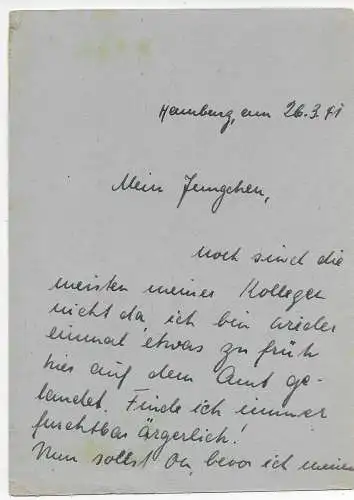 Hamburg, am 26.3.41
Mein Jungchen,
noch sind die
meisten meiner Kollegen
nicht da, ich bin wieder
einmal etwas zu früh
hier auf dem Amt ge-
landet. Finde ich immer
furchtbar ärgerlich!
Nun sollst Du, bevor ich meinen